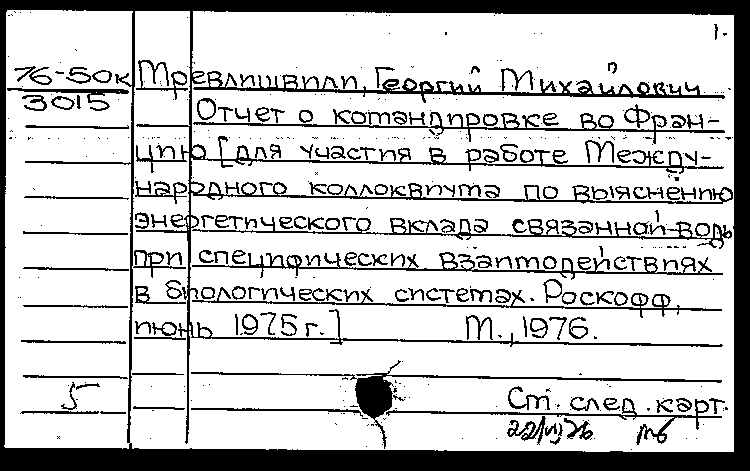 1.
76-50к Мревлишвили, Георгий Михайлович
3015
Отчет о командировке во Фран-
цию [для участия в работе Между-
народного коллоквиума по выяснению
энергетического вклада связанной воды
при специфических взаимодействиях
в биологических системах. Роскофф,
июнь 1975 г.] М., 1976.
5 См. след. карт.